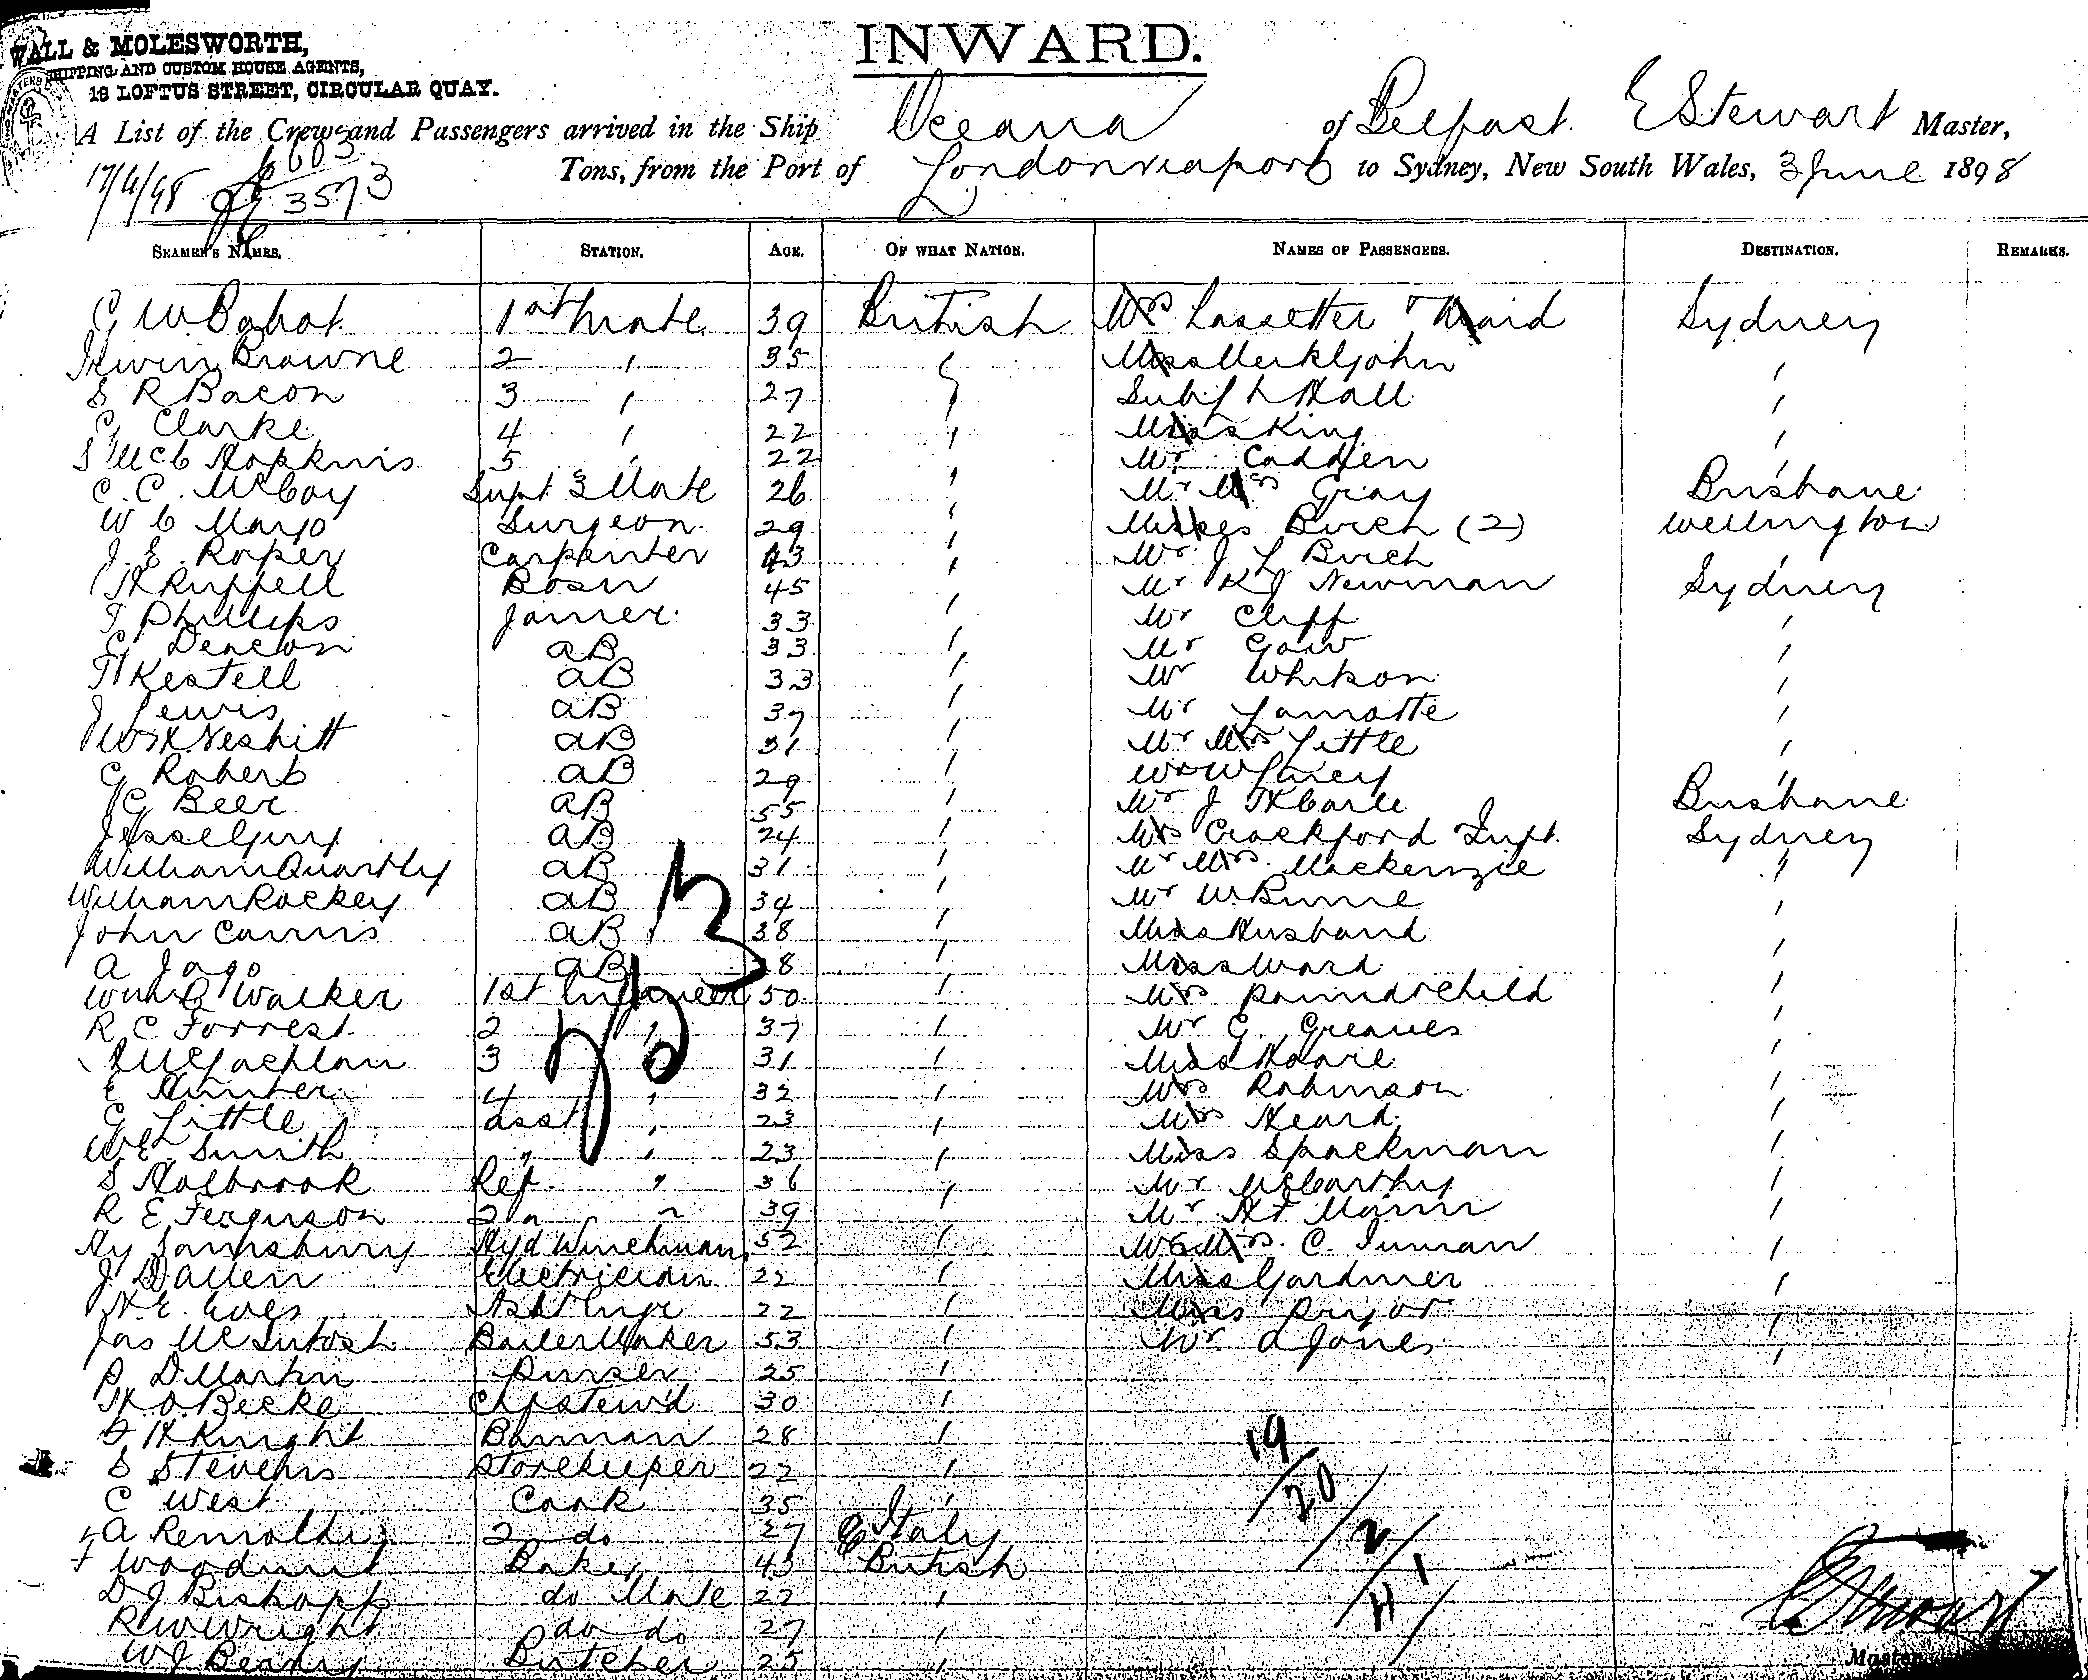 INWARD.
WALL & MOLESWORTH,
SHIPPING AND CUSTOM HOUSE AGENTS,
18 LOFTUS STREET, CIRCULAR QUAY.
A List of the Crew and Passengers arrived in the Ship Oceana of Belfast E Stewart Master,
Tons, from the Port of London via ports to Sydney, New South Wales, 3 June 1898
17/4/98 6603
3573
SEAMEN'S NAMES. STATION. AGE. OF WHAT NATION. NAMES OF PASSENGERS. DESTINATION. REMARKS.
1st Mate 39 British Mrs Lassetter & Maid Sydney
Irwin Browne 2 " 35 " Miss Merkljohn "
S R Bacon 3 " 27 " Hall "
C Clarke 4 " 22 " Miss King "
S McC Hopkins 5 " 22 " Mr Cadden "
C. C. McCoy Supt 3 Mate 26 " Mr Mrs Gray Brisbane
W C Mayo Surgeon 29 " Misses Birch (2) Wellington
J. E. Roper Carpenter 43 " Mr J L Birch "
H Ruppell Bosn 45 " Mr K J Newman Sydney
T Phillips Joiner 33 " Mr Cliff "
C Deacon AB 33 " Mr Gow "
H Kestell AB 33 " Mr "
J Lewis AB 37 " Mr Lamotte "
W H Nesbitt AB 31 " Mr Mrs Little "
G Roberts AB 29 " "
G Beer AB 55 " Mr J H Carle Brisbane
Jesse Gury AB 24 " Mrs Crockford Inft. Sydney
William Quartly AB 31 " Mr Mrs Mackenzie "
William Rockey AB 34 " Mr W "
John Cairns AB 38 " Miss Husband "
A Jago AB 8 " Miss Ward "
Walker 1st Engineer 50 " Mrs & Child "
R C Forrest 2 " 37 " Mr G. Greaves "
McLachlan 3 " 31 " Miss Hoare "
E Hunter 4 " 32 " Mrs Robinson "
G Little Asst " 23 " Mrs Heard "
W E Smith " " 23 " Miss Spackman "
S Holbrook Ref " 36 " Mr McCarthy "
R E Ferguson 2 " " 39 " Mr Mann "
Hy Sainsbury Hyd Winchman 52 " Mr & Mrs C. Inman "
J D Allen Electrician 22 " Miss Gardiner "
H. E. Eves 22 " Miss Pryor "
Jas McIntosh Boiler Maker 53 " Mr A Jones "
P D Martin Purser 25 "
H. O. Becke Ch Stew'd 30 "
F H Knight Barman 28 "
S Stevens Storekeeper 22 "
C West Cook 35 "
A 2 do 27 Italy
F Woodnutt Baker 43 British
D J Bishopp do Mate 22 "
R W Wright do do 27 "
W J Butcher 25 "
19/20/2/1
E Stewart
Master